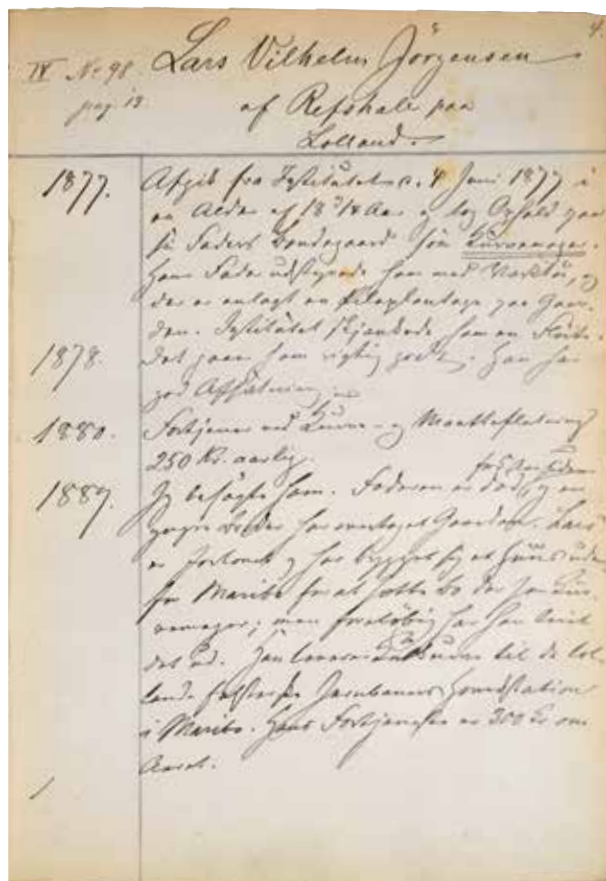 4.
IV No 98. Lars Vilhelm Jörgensen
pag. 13. af Refshale paa
Lolland.
1877. Afgik fra Institutet d. 4 Juni 1877 i
en Alder af 18 Aar og tog Ophold paa
sin Faders Bondegaard som Kurvemager.
Hans Fader udstyrede ham med Værktöi, og
der er anlagt en Pileplantage paa Gaar-
den. Institutet skjænkede ham en
1878. Det gaaer ham rigtig godt. Han har
god Afsætning.
1880. Fortjener ved Kurve- og Maattefletning
250 Kr. aarlig.
for 5 Aar siden
1889. Jeg besögte ham. Faderen er död, og en
yngre Broder har overtaget Gaarden. Lars
er forlovet og har bygget sig et Huus ude
for Maribo for at sætte Bo der som Kur-
vemager; men forelöbig har han leiet
det ud. Han leverer Kurve til de lol-
land-falsterske Jernbaners Hovedstation
i Maribo. Hans Fortjeneste er 300 Kr om
Aaret.